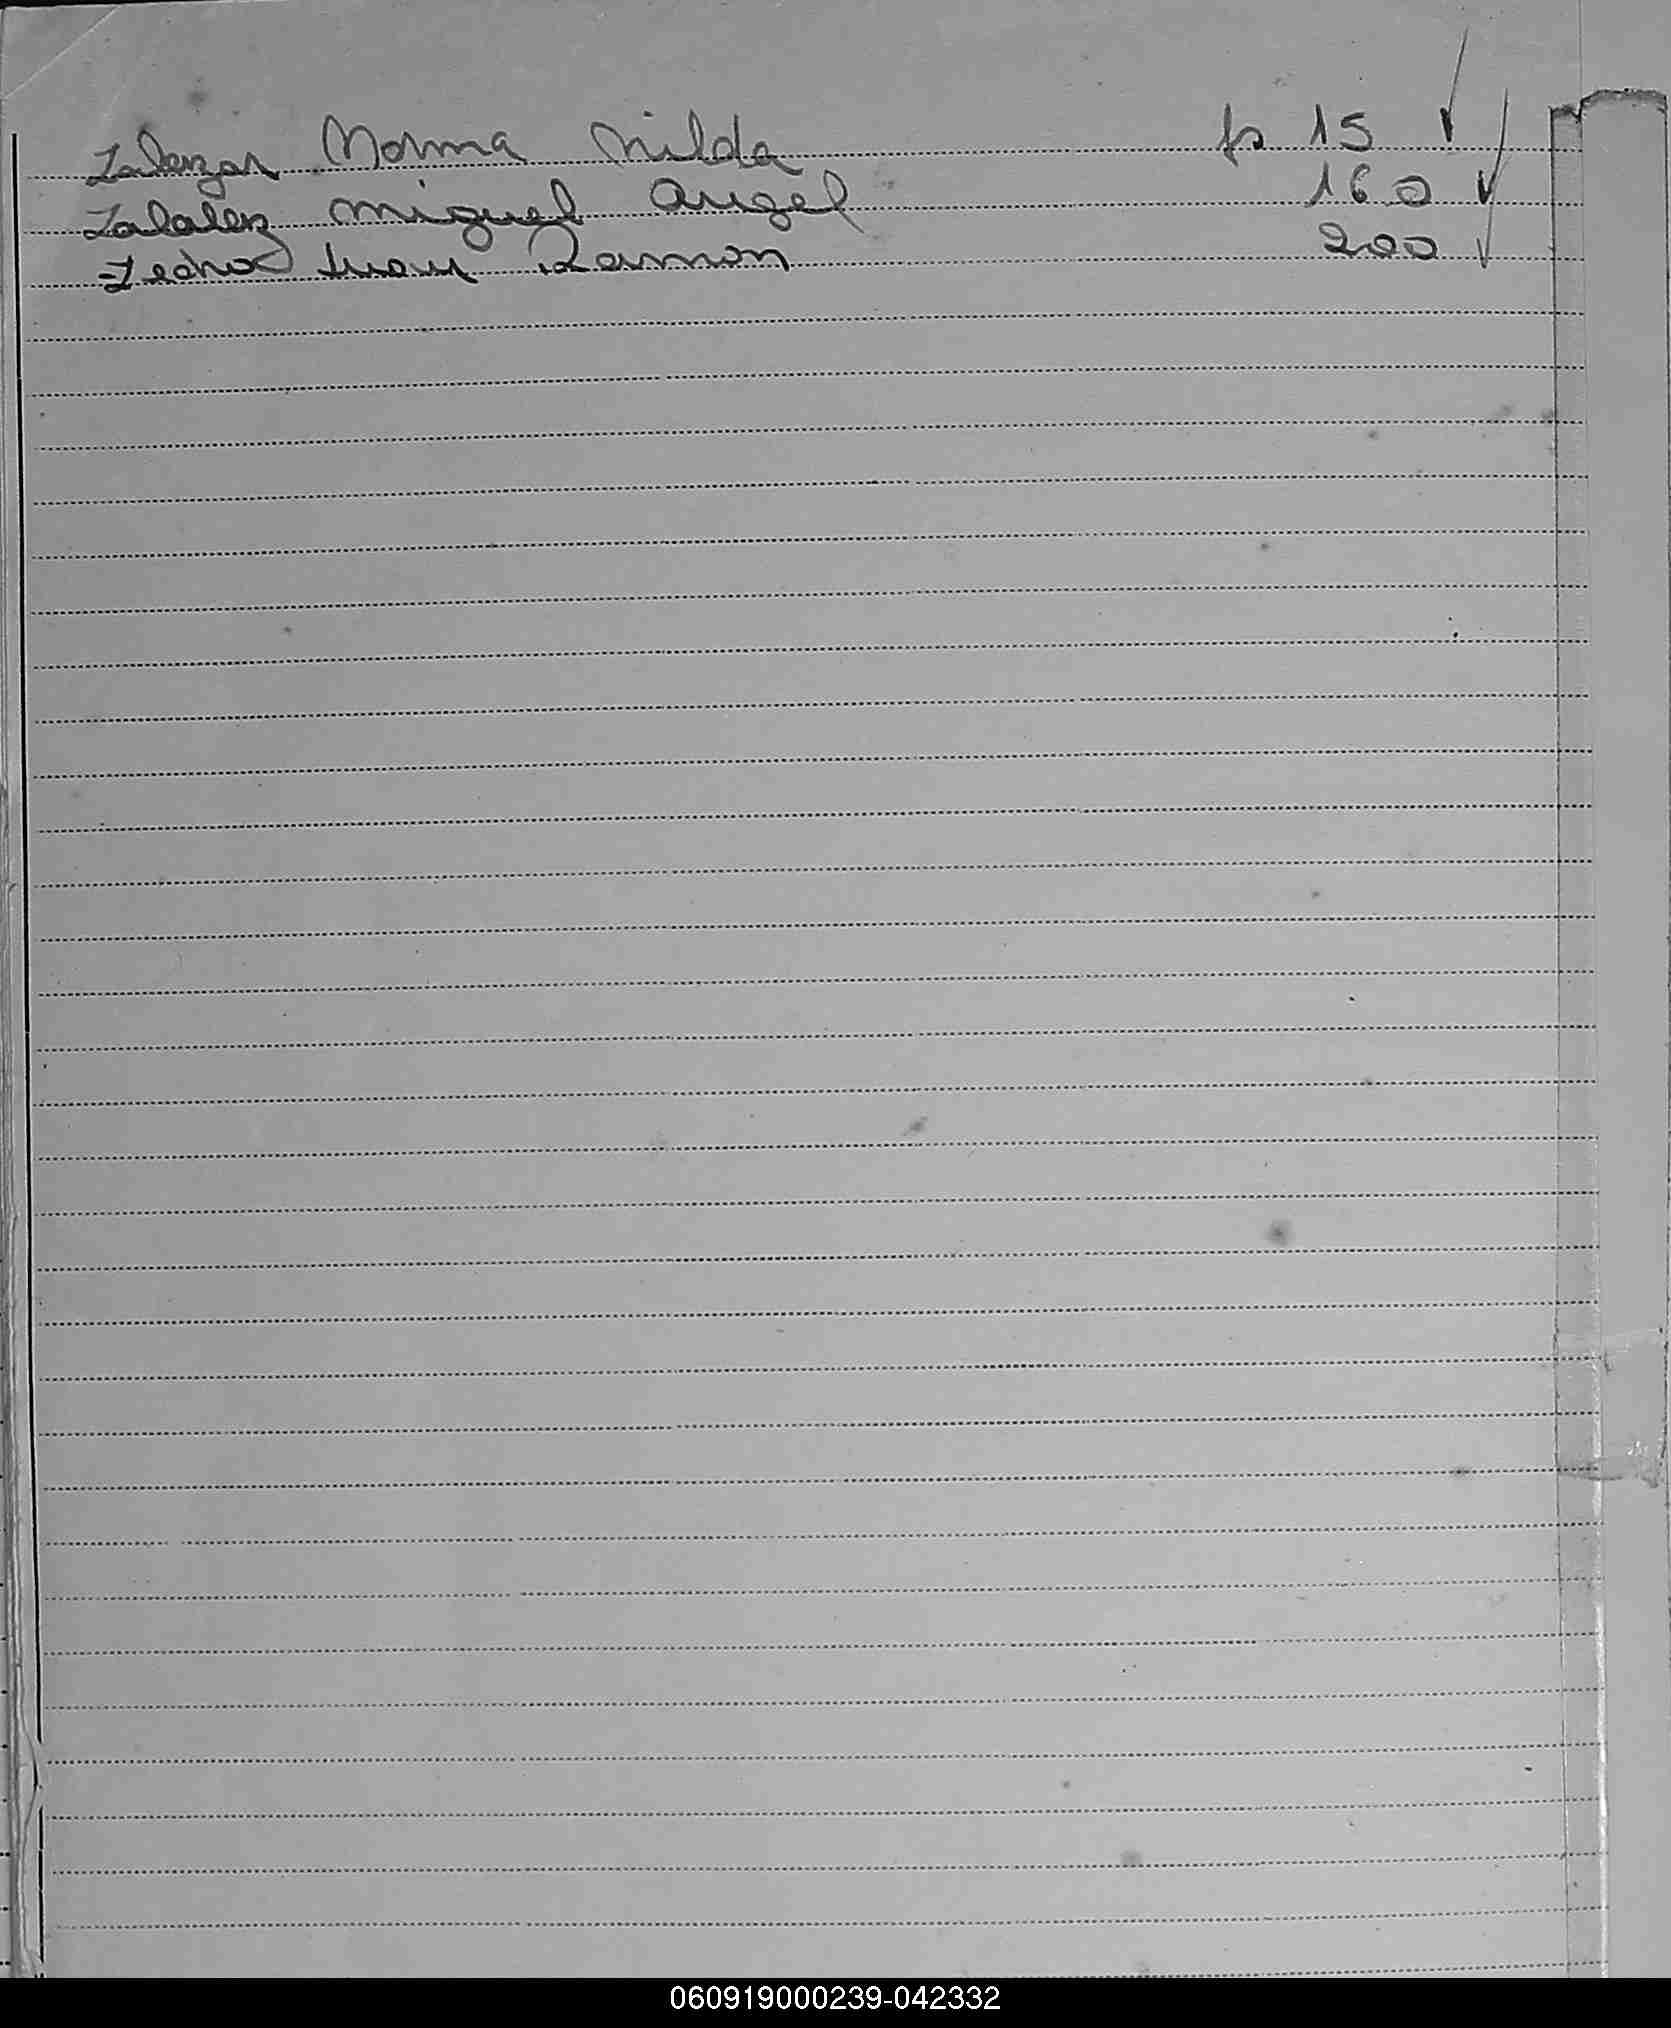 Zalazar Norma Nilda fs 15
Zalalez Miguel Angel 160
Juan Ramon 200
060919000239-042332